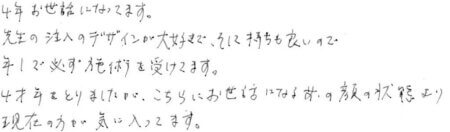 4年お世話になってます。
先生の注入のデザインが大好きで、そして持ちも良いので
年1で必ず施術を受けてます。
4才年をとりましたが、こちらにお世話になる前の顔の状態より
現在の方が気に入ってます。